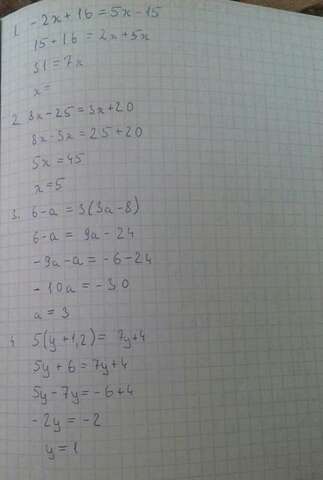 1. -2x+16=5x-15
15+16=2x+5x
31=7x
x=
2. 8x-25=3x+20
8x-3x=25+20
5x=45
x=5
3. 6-a=3(3a-8)
6-a=9a-24
-9a-a=-6-24
-10a=-30
a=3
4. 5(y+1,2)=7y+4
5y+6=7y+4
5y-7y=-6+4
-2y=-2
y=1